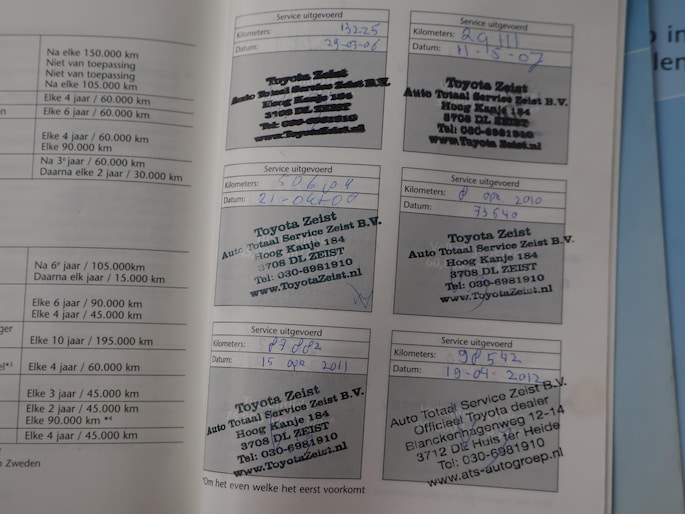 Na elke 150.000 km
Niet van toepassing
Niet van toepassing
Na elke 105.000 km
Elke 4 jaar / 60.000 km
Elke 6 jaar / 60.000 km
Elke 4 jaar / 60.000 km
Elke 90.000 km
Na 3e jaar / 60.000 km
Daarna elke 2 jaar / 30.000 km
Na 6e jaar / 105.000km
Daarna elk jaar / 15.000 km
Elke 6 jaar / 90.000 km
Elke 4 jaar / 45.000 km
Elke 10 jaar / 195.000 km
Elke 4 jaar / 60.000 km
Elke 3 jaar / 45.000 km
Elke 2 jaar / 45.000 km
Elke 90.000 km *4
Elke 4 jaar / 45.000 km
n Zweden
Service uitgevoerd
Kilometers: 13225
Datum: 29-03-06
Toyota Zeist
Auto Totaal Service Zeist B.V.
Hoog Kanje 184
3708 DL ZEIST
Tel: 030-6981910
www.ToyotaZeist.nl
Service uitgevoerd
Kilometers: 29111
Datum:
Toyota Zeist
Auto Totaal Service Zeist B.V.
Hoog Kanje 184
3708 DL ZEIST
Tel: 030-6981910
www.ToyotaZeist.nl
Service uitgevoerd
Kilometers:
Datum:
Toyota Zeist
Auto Totaal Service Zeist B.V.
Hoog Kanje 184
3708 DL ZEIST
Tel: 030-6981910
www.ToyotaZeist.nl
Service uitgevoerd
Kilometers: 8 apr 2010
Datum: 73540
Toyota Zeist
Auto Totaal Service Zeist B.V.
Hoog Kanje 184
3708 DL ZEIST
Tel: 030-6981910
www.ToyotaZeist.nl
Service uitgevoerd
Kilometers: 87882
Datum: 15 apr 2011
Toyota Zeist
Auto Totaal Service Zeist B.V.
Hoog Kanje 184
3708 DL ZEIST
Tel: 030-6981910
www.ToyotaZeist.nl
Service uitgevoerd
Kilometers: 98542
Datum: 19-04-2012
Auto Totaal Service Zeist B.V.
Officieel Toyota dealer
Blanckenhagenweg 12-14
3712 DE Huis ter Heide
Tel: 030-6981910
www.ats-autogroep.nl
*Om het even welke het eerst voorkomt